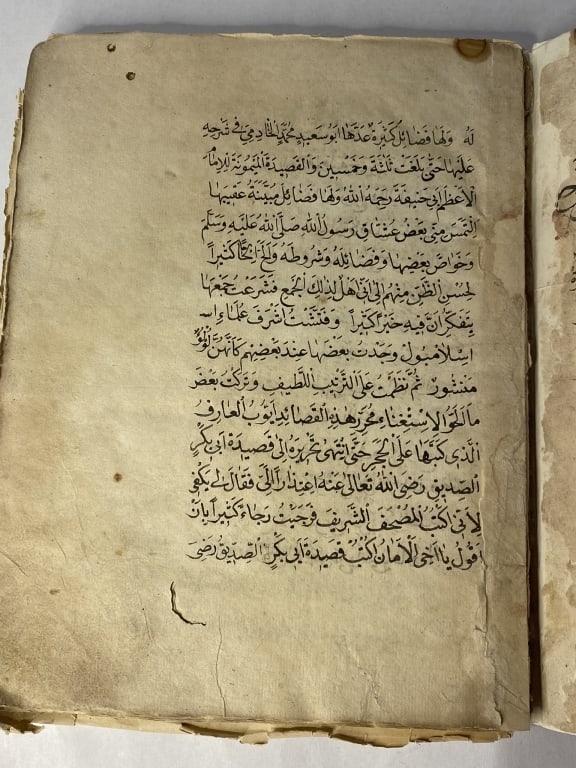 لَهُ وَلَهَا فَضَائِلُ كَثِيرَةٌ عَدَّهَا اَبُو سَعِيدٍ مُحَمَّدٌ الْخَادِمِىُّ فِى شَرْحِهِ
عَلَيْهَا حَتَّى بَلَغَتْ ثَلَثَةً وَخَمْسِينَ وَالْقَصِيدَةُ الْمَيْمُونَةُ لِلْاِمَامِ
الْاَعْظَمِ اَبِى حَنِيفَةَ رَحِمَهُ اللهُ وَلَهَا فَضَائِلُ مُبَيَّنَةٌ عَقِيبَهَا
اِلْتَمَسَ مِنِّى بَعْضُ عُشَّاقِ رَسُولِ اللهِ صَلَّى اللهُ عَلَيْهِ وَسَلَّمَ
وَخَوَاصَّ بَعْضِهَا وَفَضَائِلَهُ وَشُرُوطَهُ وَاَلَحَّ كَثِيراً
لِحُسْنِ الظَّنِّ مِنْهُمْ اِلَىَّ اَنِّى اَهْلٌ لِذٰلِكَ الْجَمْعِ فَشَرَعْتُ جَمْعَهَا
بِتَفَكُّرِ اَنَّ فِيهِ خَيْراً كَثِيراً وَفَتَّشْتُ اَشْرَفَ عُلَمَاءِ اِسـ
اِسْلَامْبُولَ وَجَدْتُ بَعْضَهَا عِنْدَ بَعْضِهِمْ كَاَنَّهُنَّ لُؤْلُؤٌ
مَنْثُورٌ ثُمَّ نَظَمْتُ عَلَى التَّرْتِيبِ اللَّطِيفِ وَتَرَكْتُ بَعْضَ
مُحَرِّرُ هٰذِهِ الْقَصَائِدِ اَيُّوبُ الْعَارِفُ
الَّذِى كَتَبَهَا عَلَى الْحَجَرِ حَتَّى انْتَهَى تَحْرِيرُهُ اِلَى قَصِيدَةِ اَبِى بَكْرٍ
الصِّدِّيقِ رَضِىَ اللهُ تَعَالَى عَنْهُ اِعْتِذَاراً اِلَىَّ فَقَالَ لِى يَكْفِى
لِاَنِّى اَكْتُبُ الْمُصْحَفَ الشَّرِيفَ فَرَجَيْتُ رَجَاءً كَثِيراً بِاَنْ
اَقُولَ يَا اَخِى الْاَمَانُ اُكْتُبْ قَصِيدَةَ اَبِى بَكْرٍ الصِّدِّيقِ رَضِىَ